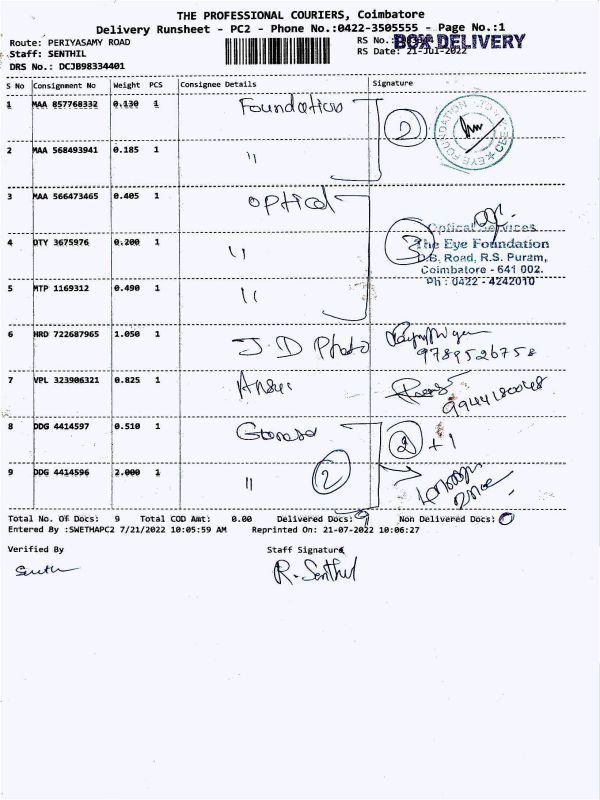 THE PROFESSIONAL COURIERS, Coimbatore
Delivery Runsheet - PC2 - Phone No.:0422-3505555 - Page No.:1
Route: PERIYASAMY ROAD RS No.: BOX DELIVERY
Staff: SENTHIL RS Date: 21-Jul-2022
DRS No.: DCJB98334401
S No Consignment No Weight PCS Consignee Details Signature
1 MAA 857768332 0.130 1 Foundation 2
2 MAA 568493941 0.185 1 "
EYE FOUNDATION
3 MAA 566473465 0.405 1 optical 3
Optical Services
4 DTY 3675976 0.200 1 " The Eye Foundation
D.B. Road, R.S. Puram,
Coimbatore - 641 002.
5 MTP 1169312 0.490 1 " Ph : 0422 - 4242010
6 HRD 722687965 1.050 1 J.D Photo
9789526758
7 VPL 323906321 0.825 1
9944180048
8 DDG 4414597 0.510 1 2 +1
9 DDG 4414596 2.000 1 " 2
Total No. Of Docs: 9 Total COD Amt: 0.00 Delivered Docs: 9 Non Delivered Docs: 0
Entered By :SWETHAPC2 7/21/2022 10:05:59 AM Reprinted On: 21-07-2022 10:06:27
Verified By Staff Signature
R. Senthil